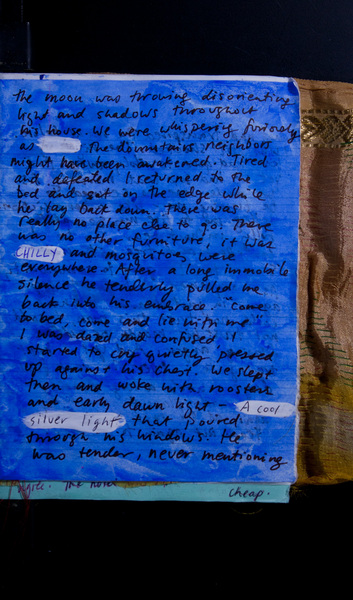 the moon was throwing disorienting
light and shadows throughout
his house. We were whispering furiously
as the downstairs neighbors
might have been awakened. Tired
and defeated I returned to the
bed and sat on the edge while
he lay back down. There was
really no place else to go. There
was no other furniture, it was
CHILLY and mosquitoes were
everywhere. After a long immobile
silence he tenderly pulled me
back into his embrace. "Come
to bed, come and lie with me"
I was dazed and confused. I
started to cry quietly pressed
up against his chest. We slept
then and woke with roosters
and early dawn light - A cool
silver light that poured
through his windows. He
was tender, never mentioning
cheap.